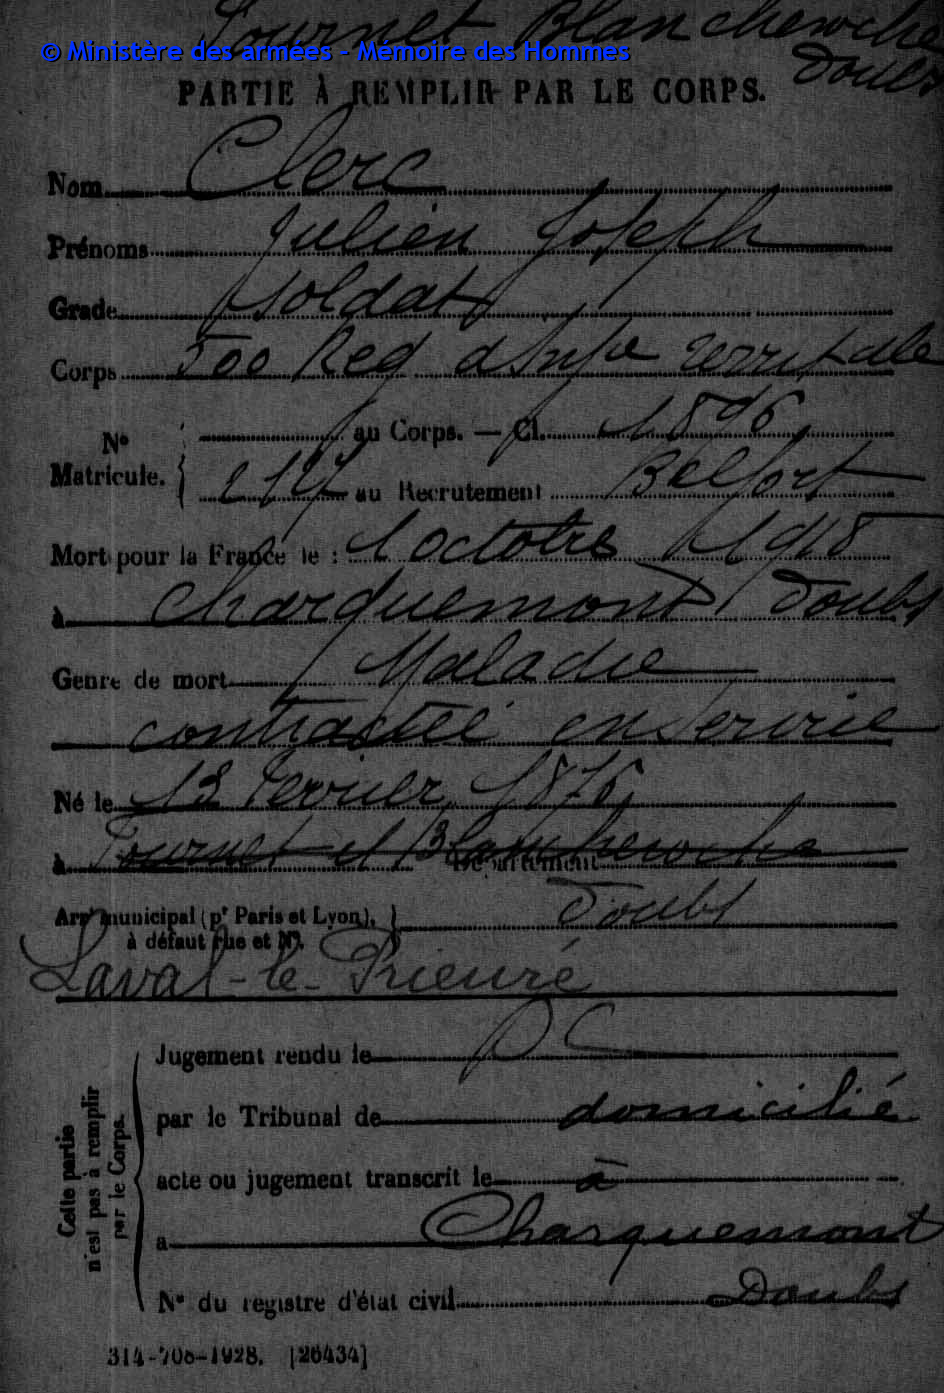 Fournet Blancheroche
© Ministère des armées - Mémoire des Hommes
Doubs
PARTIE À REMPLIR PAR LE CORPS.
Nom Clerc
Prénoms Julien Joseph
Grade Soldat
Corps Reg d'Infie Territ ale
Nº Matricule. au Corps. — Cl. 1896
2127 au Recrutement Belfort
Mort pour la France le : 1 octobre 1918
à Charquemont Doubs
Genre de mort Maladie
contractée en service
Né le 13 Février 1876
à Fournet et Blancheroche Département
Arrt municipal (pr Paris et Lyon), Doubs
à défaut rue et Nº.
Laval-le-Prieuré
Jugement rendu le DC
par le Tribunal de domicilié
acte ou jugement transcrit le à
à Charquemont
Nº du registre d'état civil Doubs
Cette partie n'est pas à remplir par le Corps.
314-708-1928. [26434]